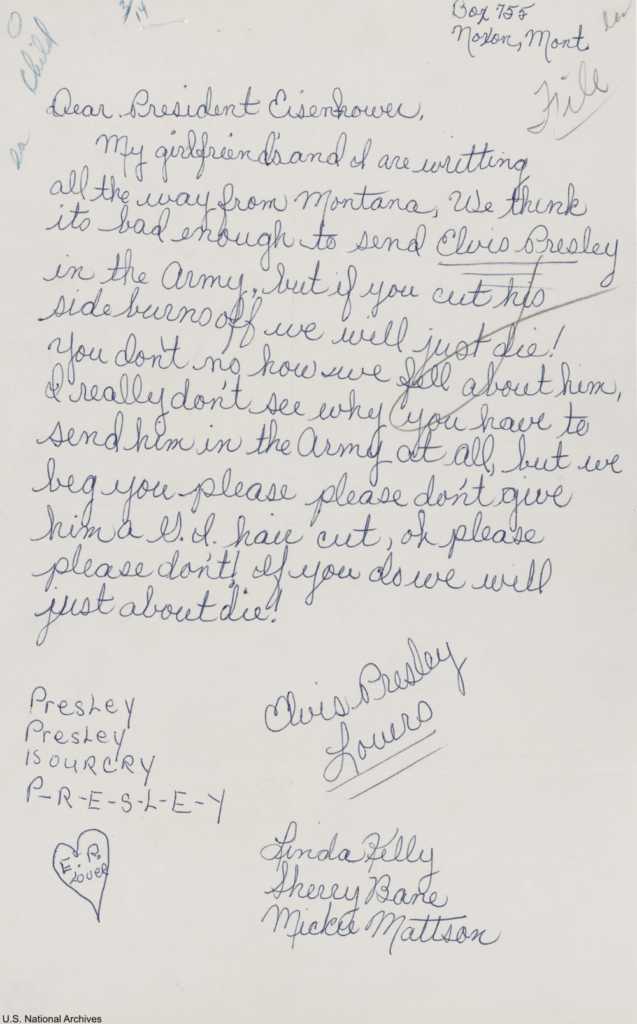 3/14
Child
Box 755
Noxon, Mont
File
Dear President Eisenhower,
My girlfriend's and I are writting
all the way from Montana, We think
its bad enough to send Elvis Presley
in the Army, but if you cut his
side burns off we will just die!
You don't no how we fell about him,
I really don't see why you have to
send him in the Army at all, but we
beg you please please don't give
him a G.I. hair cut, oh please
please don't! If you do we will
just about die!
Elvis Presley
Lovers
Presley
Presley
IS OUR CRY
P-R-E-S-L-E-Y
E. P.
Lover
Linda Kelly
Sherry Bane
Mickie Mattson
U.S. National Archives